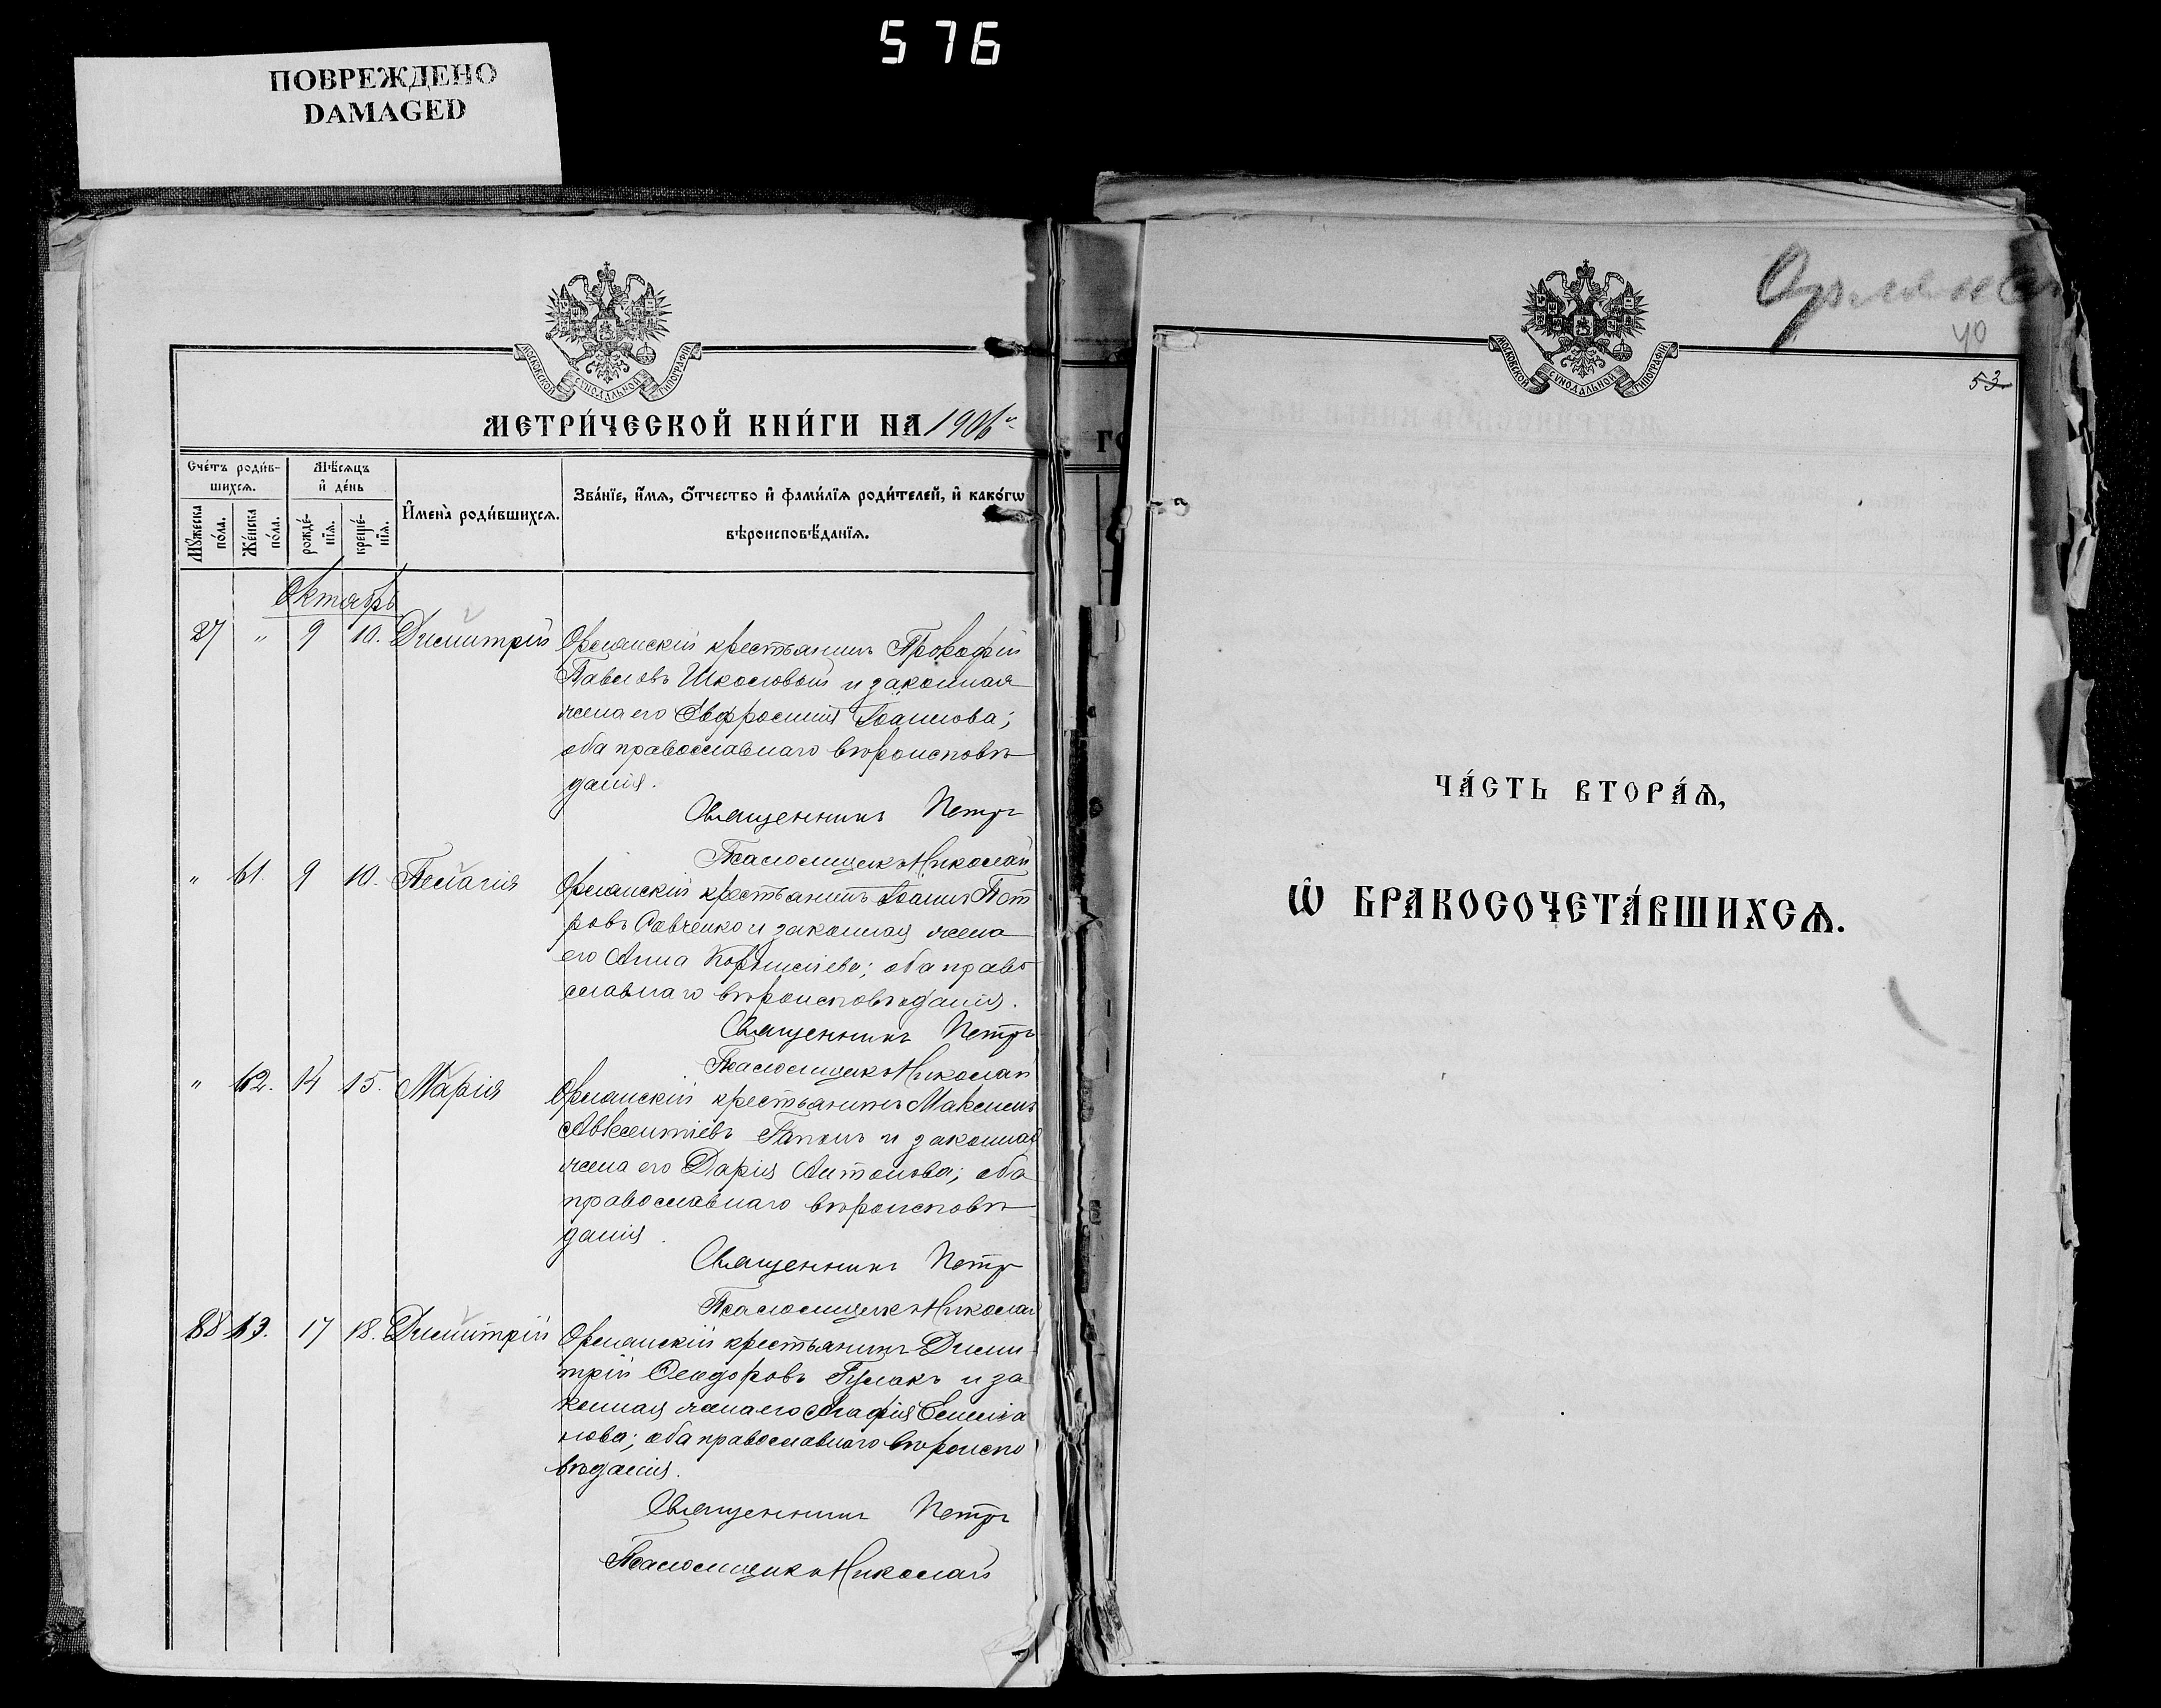 576
ПОВРЕЖДЕНО
DAMAGED
МОСКОВСКОЙ СѴНОДАЛЬНОЙ ТИПОГРАФІИ
МЕТРИ́ЧЕСКОЙ КНИ́ГИ НА 1906
Сче́тъ роди́в-
шихсѧ.
Мѣ́сѧцъ
и҆ де́нь
И҆мена̀ роди́вшихсѧ.
Зва́нїе, и҆́мѧ, ѻ҆́тчество и҆ фами́лїѧ роди́телей, и҆ како́гѡ
вѣроисповѣ́данїѧ.
Мꙋ́жеска по́ла.
Же́нска по́ла.
рожде́-нїѧ.
креще́-нїѧ.
Октябрь
27 " 9 10. Димитрій Орлянскій крестьянинъ Прокофій
Павловъ Школовый и законная
жена его Евфросинія Іоаннова;
оба православнаго вѣроисповѣ
данія.
Священникъ Петръ
Псаломщикъ Николай
" 61. 9 10. Пелагія Орлянскій крестьянинъ Іоаннъ Пет
ровъ Савченко и законная жена
его Анна Корнилiева; оба право
славнаго вѣроисповѣданія.
Священникъ Петръ
Псаломщикъ Николай
" 62. 14 15. Марія Орлянскій крестьянинъ Максимъ
Авксентіевъ Гапонъ и законная
жена его Дарія Антонова; оба
православнаго вѣроисповѣ
данія.
Священникъ Петръ
Псаломщикъ Николай
88 63. 17 18. Димитрій Орлянскій крестьянинъ Дими
трій Ѳеодоровъ Гулакъ и за
конная жена его Агафія Емелiа
нова; оба православнаго вѣроиспо
вѣданія.
Священникъ Петръ
Псаломщикъ Николай
ГО
МОСКОВСКОЙ СѴНОДАЛЬНОЙ ТИПОГРАФІИ
Орлянск
40
53
ЧА́СТЬ ВТОРА́Ѧ,
Ѡ҆ БРАКОСОЧЕТА́ВШИХСѦ.